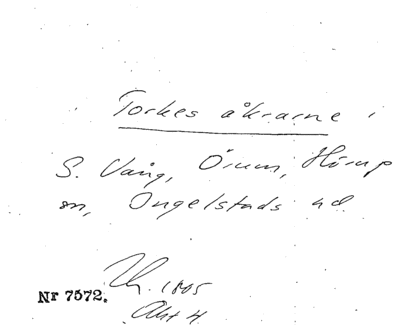 Torkes åkrarne i
S. Vång, Örum, Hörup
sn, Ingelstads hd
Nr 7572.
1805
Akt 4